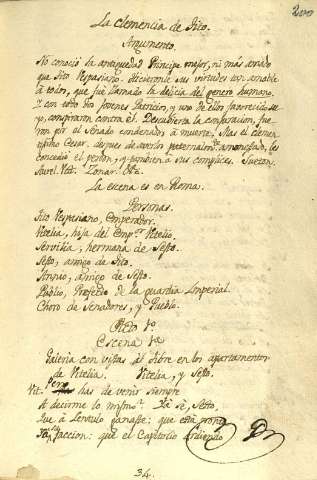 200
La clemencia de Tito.
Argumento.
No conoció la antiguedad Principe mejor, ni más amado
que Tito Vespasiano. Hicieronle sus virtudes tan amable
à todos, que fué llamado la delicia del genero humano.
Y con todo dos Jovenes Patricios, y uno de ellos favorecido su-
yo, conspiraron contra él. Descubierta la conspiracion, fue-
ron por el Senado condenados à muerte; Mas el clemen-
tisimo Cesar, despues de averlos paternalmte. amonestado, les
concedió el perdón, y tambien à sus complices. Sueton.
Aurel. Vict. Zonar. &a.
La escena es en Roma.
Personas.
Tito Vespasiano, Emperador.
Vitelia, hija del Empor. Vitelio.
Servilia, hermana de Sesto.
Sesto, amigo de Tito.
Annio, amigo de Sesto.
Publio, Prefecto de la guardia Imperial.
Choro de Senadores, y Pueblo.
Acto 1º
Escena 1ª
Galeria con vistas al Tibre en los apartamentos
de Vitelia. Vitelia, y Sesto.
Vit. Pero has de venir siempre
A decirme lo mismo? Ya sé, Sesto,
Que à Lentulo ganaste: que está pronta
Su faccion: que el Capitolio ardiendo
34.